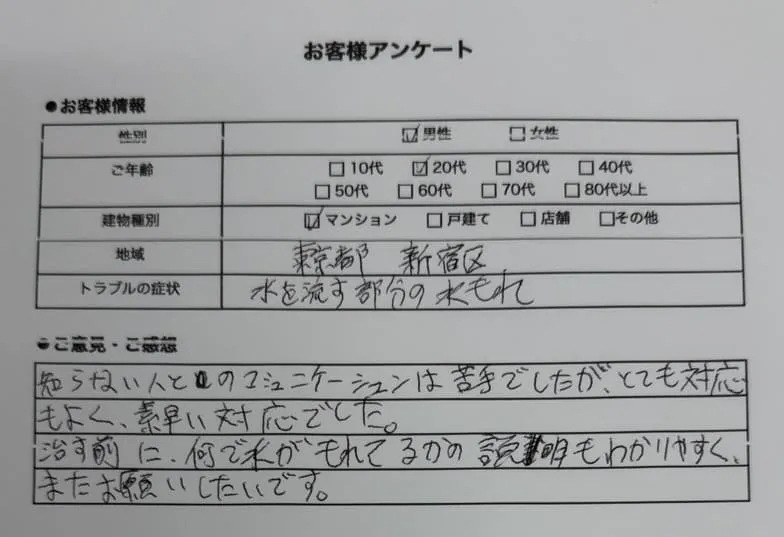 お客様アンケート
●お客様情報
性別 ☑男性 □女性
ご年齢 □10代 ☑20代 □30代 □40代
□50代 □60代 □70代 □80代以上
建物種別 ☑マンション □戸建て □店舗 □その他
地域 東京都 新宿区
トラブルの症状 水を流す部分の水もれ
●ご意見・ご感想
知らない人とのコミュニケーションは苦手でしたが、とても対応
もよく、素早い対応でした。
治す前に、何で水がもれてるかの説明もわかりやすく、
またお願いしたいです。